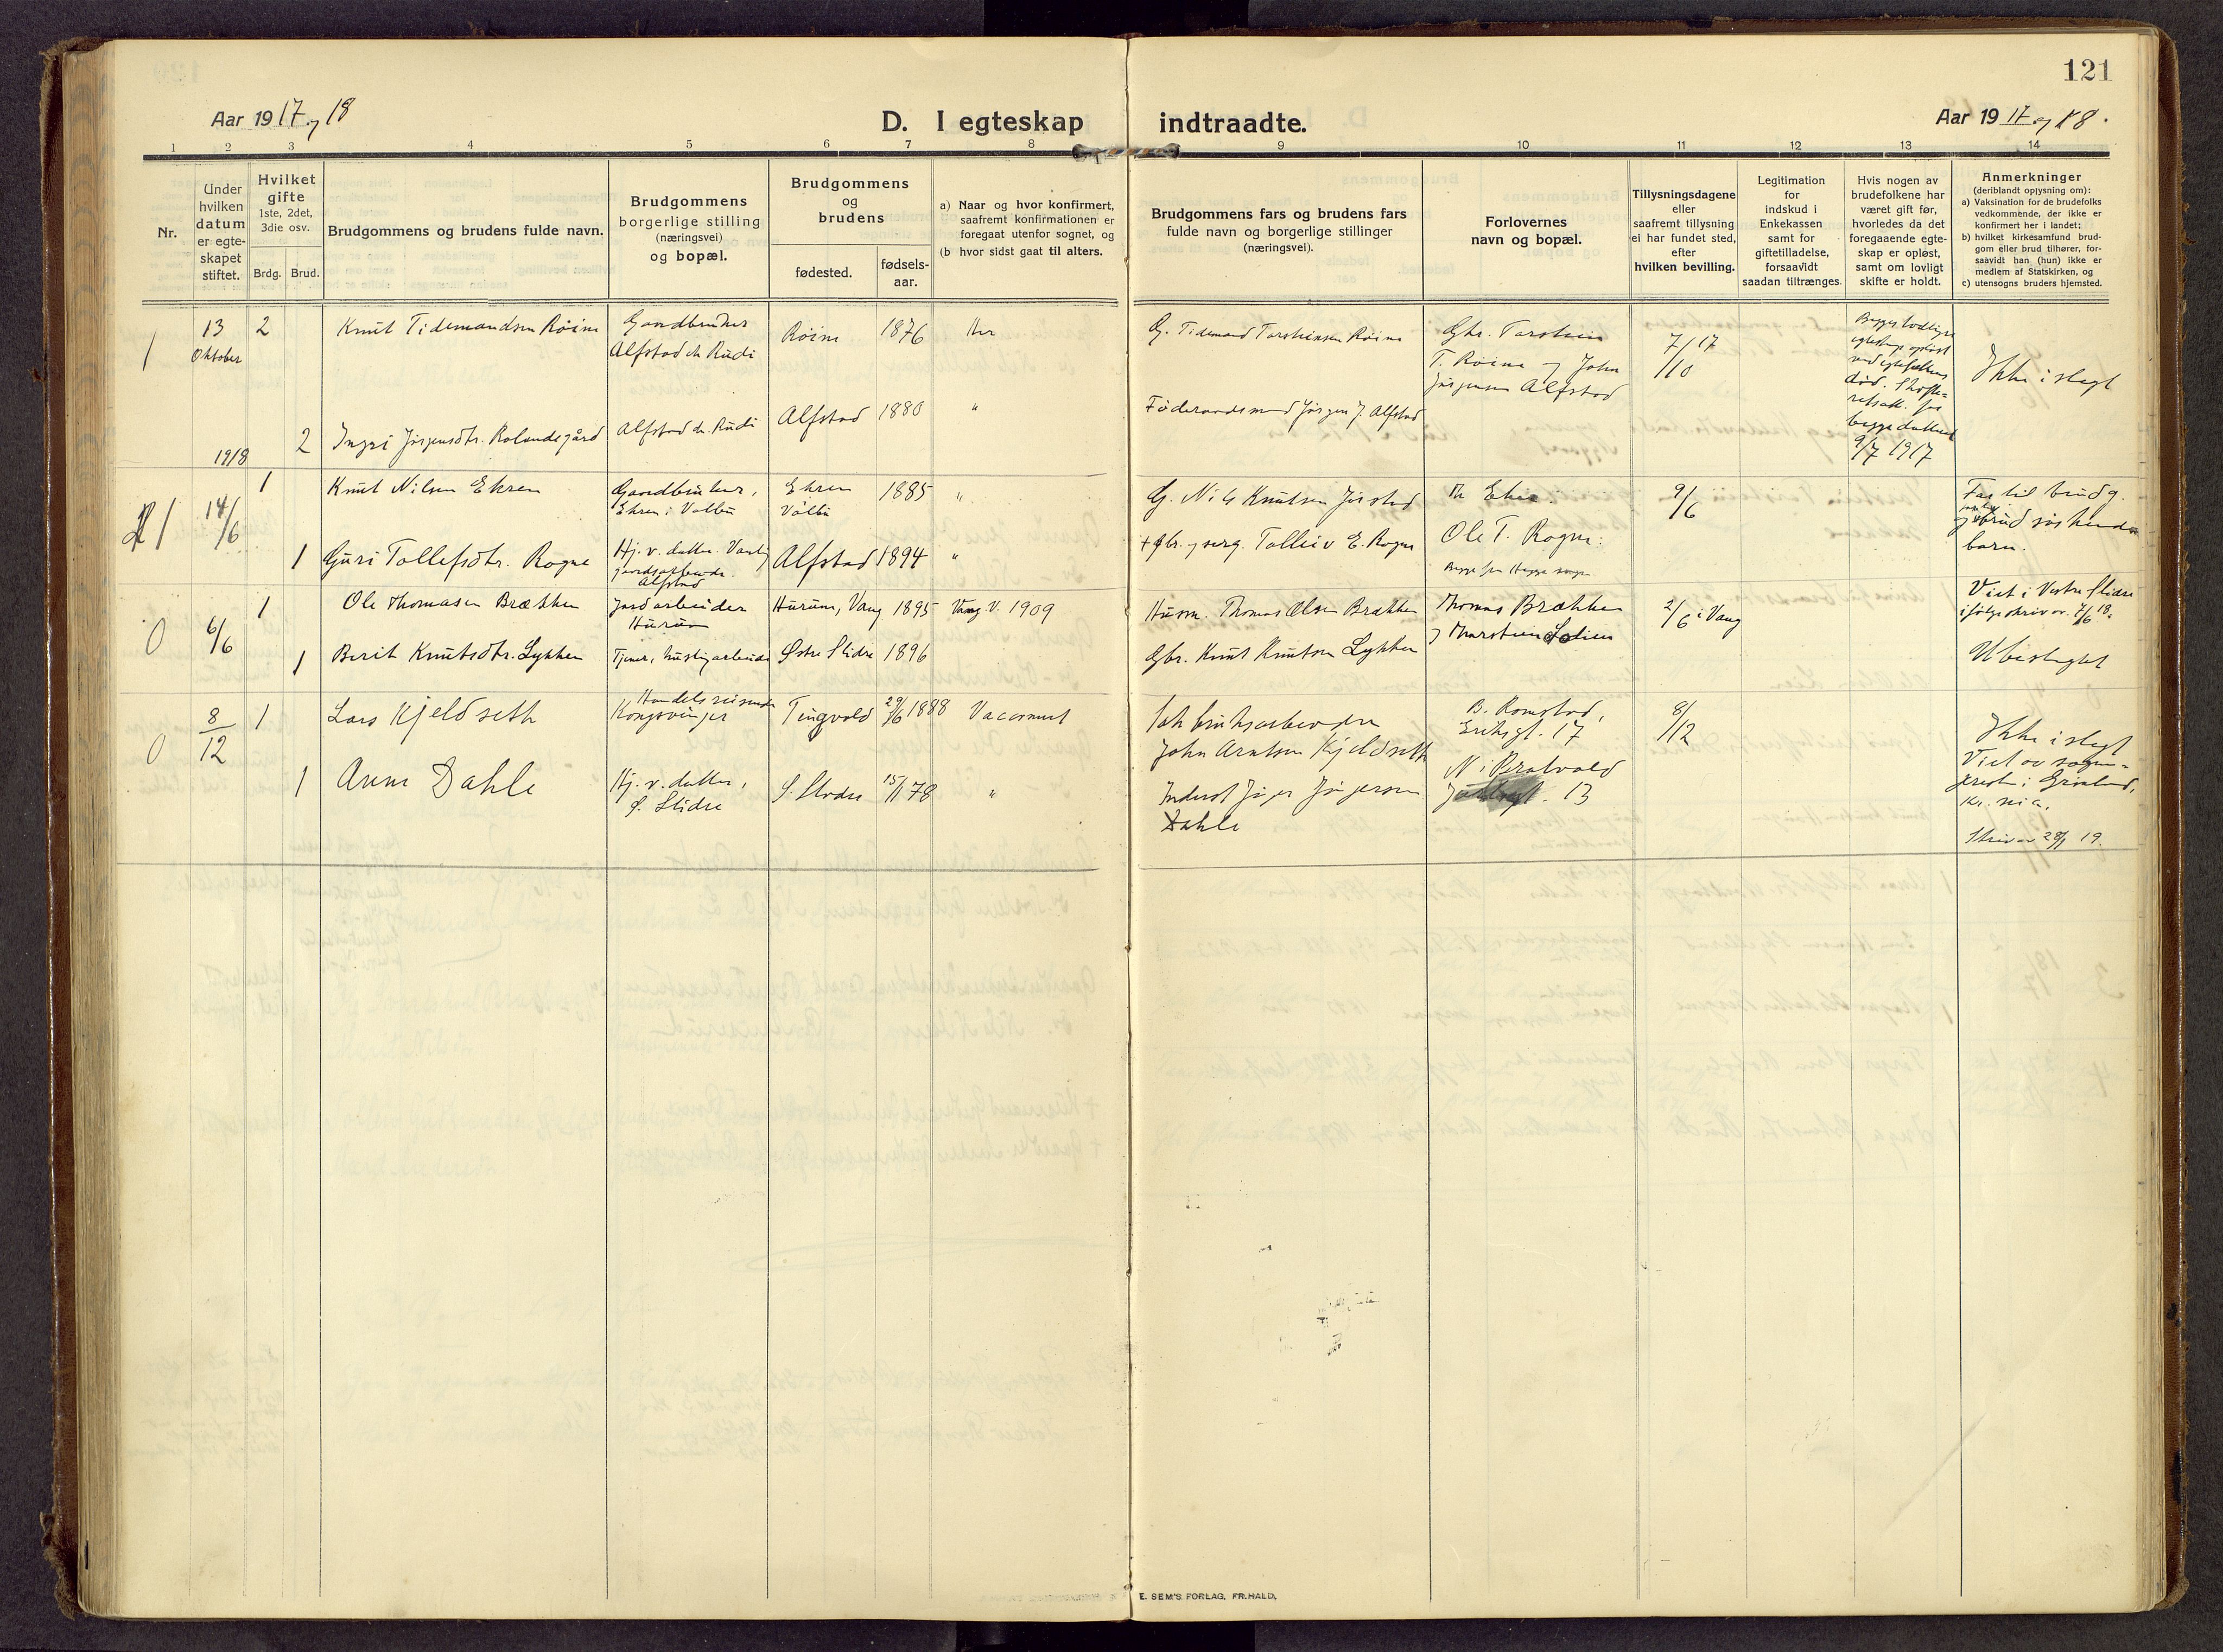 121
Aar 1917 og 18
D. I egteskap indtraadte.
Aar 1917 og 18.
1 2 3 4 5 6 7 8 9 10 11 12 13 14
Nr.
Under
hvilken
datum
er egte-
skapet
stiftet.
Hvilket
gifte
1ste, 2det,
3die osv.
Brdg. Brud.
Brudgommens og brudens fulde navn.
Brudgommens
borgerlige stilling
(næringsvei)
og bopæl.
Brudgommens
og
brudens
fødested.
fødsels-
aar.
a) Naar og hvor konfirmert,
saafremt konfirmationen er
foregaat utenfor sognet, og
(b hvor sidst gaat til alters.
Brudgommens fars og brudens fars
fulde navn og borgerlige stillinger
(næringsvei).
Forlovernes
navn og bopæl.
Tillysningsdagene
eller
saafremt tillysning
ei har fundet sted,
efter
hvilken bevilling.
Legitimation
for
indskud i
Enkekassen
samt for
giftetilladelse,
forsaavidt
saadan tiltrænges.
Hvis nogen av
brudefolkene har
været gift før,
hvorledes da det
foregaaende egte-
skap er opløst,
samt om lovligt
skifte er holdt.
Anmerkninger
(deriblandt opjysning om):
a) Vaksination for de brudefolks
vedkommende, der ikke er
konfirmert her i landet;
b) hvilket kirkesamfund brud-
gom eller brud tilhører, for-
saavidt han (hun) ikke er
medlem af Statskirken, og
c) utensogns bruders hjemsted.
1
13
Oktober
2
Knut Tidemandsen Röine
Gaardbruker
Alfstad ch. Rudi
Röine
1876
Her
G. Tidemand Torsteinsen Röine
Gbr. Torstein
T. Röine og John
Jörgensen Alfstad
7/17
/10
Begges tidligere
egteskap opløst
ved egtefællens
død. Skifte-
retsatt. for
begge datteret
9/7 1917
Ikke i slegt
2
Ingri Jörgensdtr. Rolandsgård
Alfstad ch. Rudi
Alfstad
1880
"
Föderaadsmand Jörgen J. Alfstad
1918
1
14/6
1
Knut Nilsen Ekren
Gaardbruker,
Ekren i Volbu
Ekren
Volbu
1885
"
G. Nils Knutsen Jorstad
Ole T. Rogne.
9/6
Far til brudg.
og brud søskende-
barn.
1
Guri Tollefsdtr. Rogne
Hj. v. datter. Vanlig
jordsarbeide.
Alfstad
Alfstad
1894
"
+ Gbr. og serg. Tolleiv E. Rogne
Begge fra Hegge sogn
0
6/6
1
Ole Thomasen Brækken
Jordarbeider
Hurum
Hurum, Vang
1895
Vang V. 1909
Husm. Thomas Olsen Brækken
Thomas Brækken
og Thorstein Lolien
2/6 i Vang
Viet i Vestre Slidre
ifølge skriv av 7/6 18.
Ubeslegtet
1
Berit Knutsdtr. Lykken
Tjener, huslig arbeide
Østre Slidre
1896
Gbr. Knut Knutsen Lykken
0
8/12
1
Lars Kjeldseth
Handelsreisende
Kongsvinger
Tingvold
29/6 1888
Vaccinert
John Arntsen Kjeldseth
B. Romstad,
Eriksgt. 17
8/12
Ikke i slegt
Viet av sogne-
prest i Grønland,
Kr.nia.
Skriv av 28/1 19.
1
Anne Dahle
Hj. v. datter,
Ø. Slidre
Ö. Slidre
15/11 78
"
Inderst Jöger Jögersen
Dahle
N. Bratvold
13
E. SEM'S FORLAG, FR.HALD,